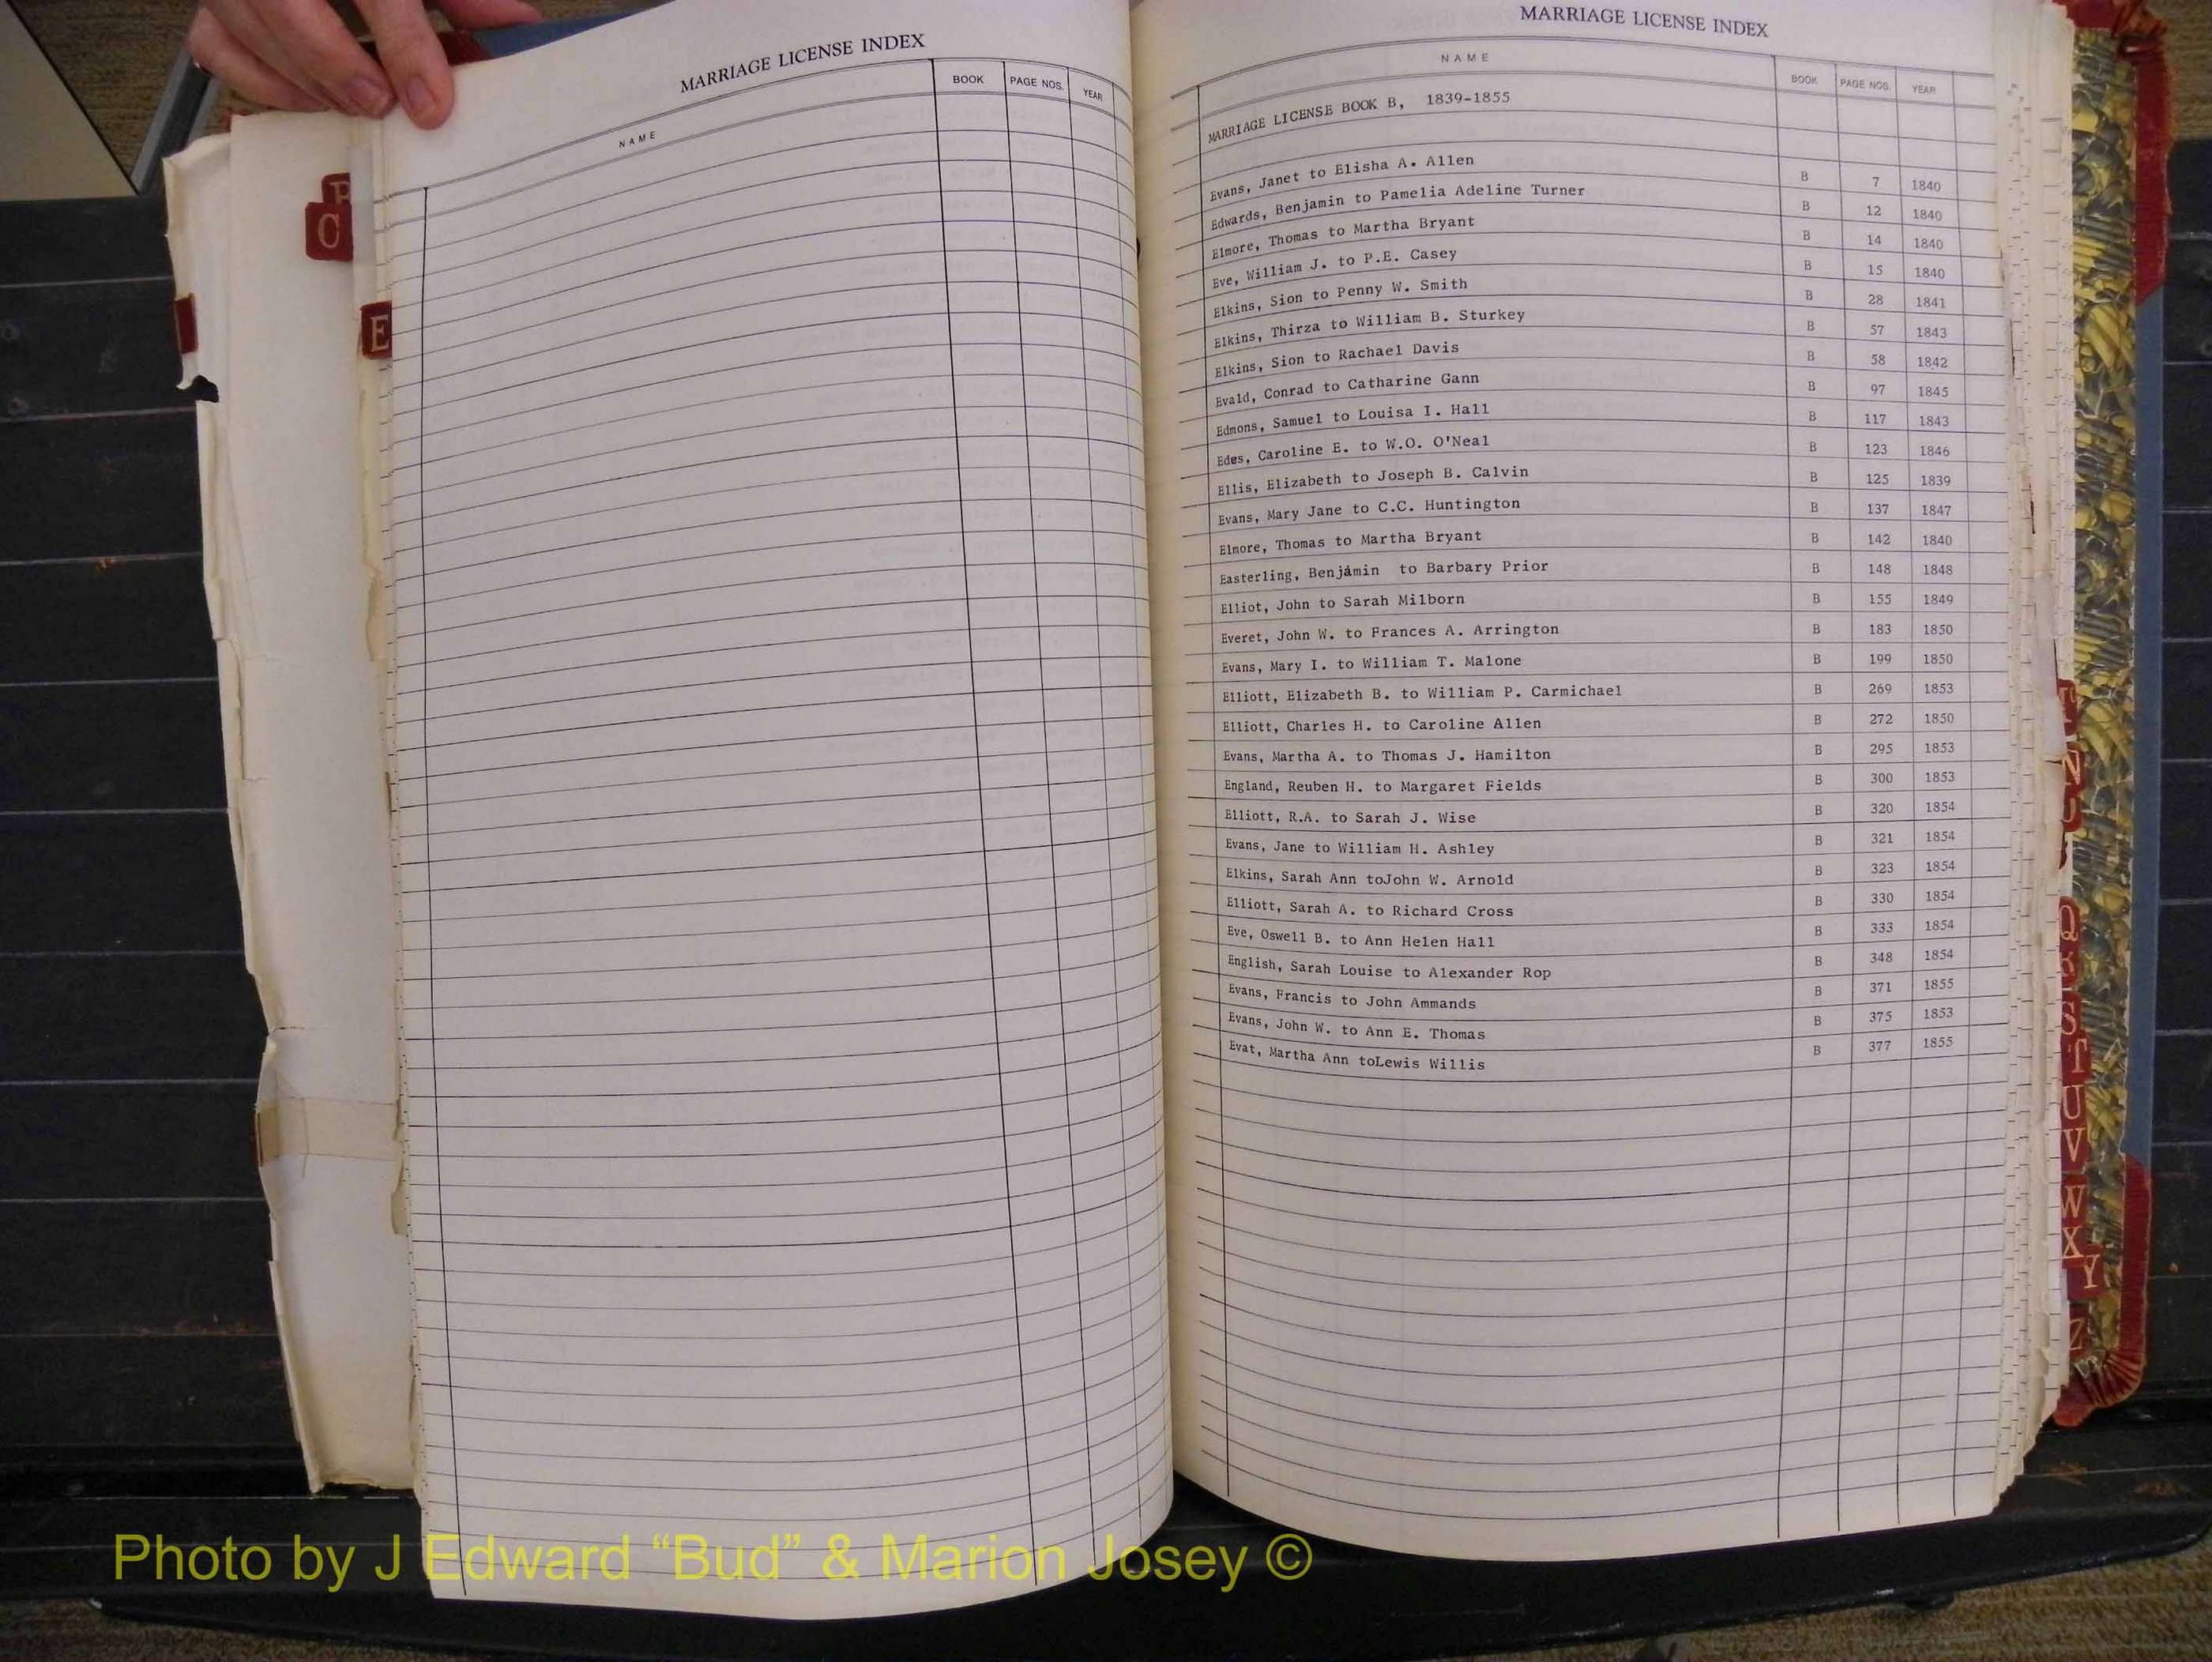 MARRIAGE LICENSE INDEX
NAME BOOK PAGE NOS. YEAR
C
E
MARRIAGE LICENSE INDEX
NAME BOOK PAGE NOS. YEAR
MARRIAGE LICENSE BOOK B, 1839-1855
Evans, Janet to Elisha A. Allen B 7 1840
Edwards, Benjamin to Pamelia Adeline Turner B 12 1840
Elmore, Thomas to Martha Bryant B 14 1840
Eve, William J. to P.E. Casey B 15 1840
Elkins, Sion to Penny W. Smith B 28 1841
Elkins, Thirza to William B. Sturkey B 57 1843
Elkins, Sion to Rachael Davis B 58 1842
Evald, Conrad to Catharine Gann B 97 1845
Edmons, Samuel to Louisa I. Hall B 117 1843
Edes, Caroline E. to W.O. O'Neal B 123 1846
Ellis, Elizabeth to Joseph B. Calvin B 125 1839
Evans, Mary Jane to C.C. Huntington B 137 1847
Elmore, Thomas to Martha Bryant B 142 1840
Easterling, Benjamin to Barbary Prior B 148 1848
Elliot, John to Sarah Milborn B 155 1849
Everet, John W. to Frances A. Arrington B 183 1850
Evans, Mary I. to William T. Malone B 199 1850
Elliott, Elizabeth B. to William P. Carmichael B 269 1853
Elliott, Charles H. to Caroline Allen B 272 1850
Evans, Martha A. to Thomas J. Hamilton B 295 1853
England, Reuben H. to Margaret Fields B 300 1853
Elliott, R.A. to Sarah J. Wise B 320 1854
Evans, Jane to William H. Ashley B 321 1854
Elkins, Sarah Ann toJohn W. Arnold B 323 1854
Elliott, Sarah A. to Richard Cross B 330 1854
Eve, Oswell B. to Ann Helen Hall B 333 1854
English, Sarah Louise to Alexander Rop B 348 1854
Evans, Francis to John Ammands B 371 1855
Evans, John W. to Ann E. Thomas B 375 1853
Evat, Martha Ann toLewis Willis B 377 1855
Q
R
S
T
U
V
W
X
Y
Z
Photo by J Edward “Bud” & Marion Josey ©